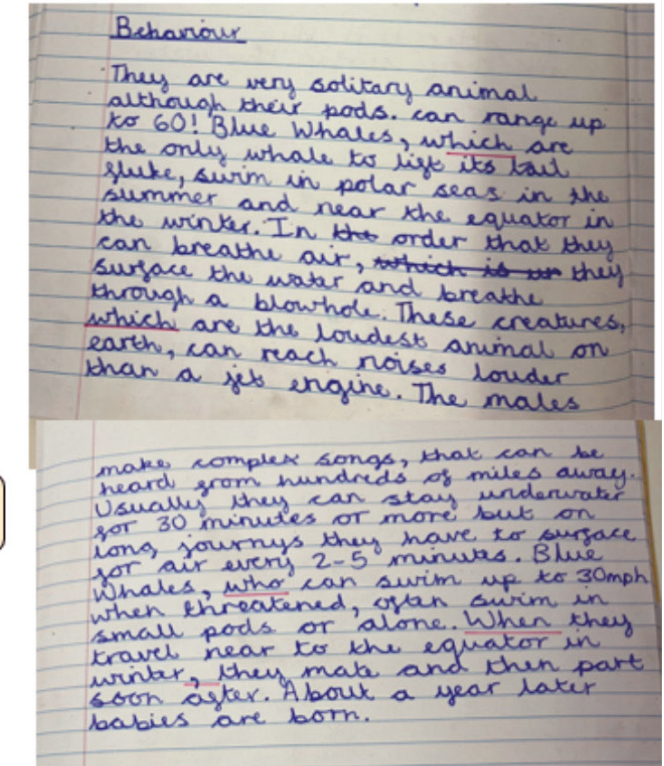 Behaviour
They are very solitary animal
although their pods. can range up
to 60! Blue Whales, which are
the only whale to lift its tail
fluke, swim in polar seas in the
summer and near the equator in
the winter. In the order that they
can breathe air, which is up they
surface the water and breathe
through a blowhole. These creatures,
which are the loudest animal on
earth, can reach noises louder
than a jet engine. The males
make complex songs, that can be
heard from hundreds of miles away.
Usually they can stay underwater
for 30 minutes or more but on
long journys they have to surface
for air every 2-5 minutes. Blue
Whales, who can swim up to 30mph
when threatened, often swim in
small pods or alone. When they
travel near to the equator in
winter, they mate and then part
soon after. About a year later
babies are born.